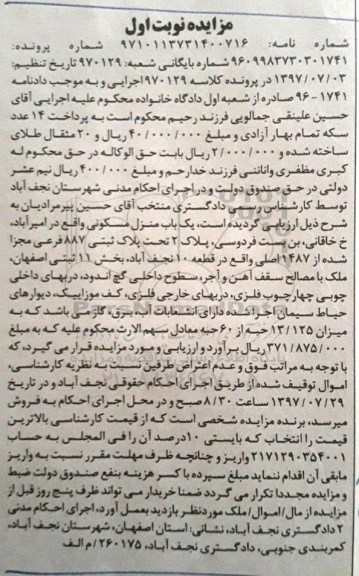 مزایده نوبت اول
شماره نامه: ۹۷۱۰۱۱۳۷۳۱۴۰۰۷۱۶ شماره پرونده:
۹۶۰۹۹۸۳۷۳۰۳۰۱۷۴۱ شماره بایگانی شعبه: ۹۷۰۱۲۹ تاریخ تنظیم:
۱۳۹۷/۰۷/۰۳ در پرونده کلاسه ۹۷۰۱۲۹ اجرایی و به موجب دادنامه
۱۷۴۱-۹۶ صادره از شعبه اول دادگاه خانواده محکوم علیه اجرایی آقای
حسین علینقی جمالویی فرزند رحیم محکوم است به پرداخت ۱۴ عدد
سکه تمام بهار آزادی و مبلغ ۴۰/۰۰۰/۰۰۰ ریال و ۲۰ مثقال طلای
ساخته شده و ۲/۰۰۰/۰۰۰ ریال بابت حق الوکاله در حق محکوم له
کبری مظفری وانانی فرزند خدارحم و مبلغ ۴۰۰/۰۰۰ ریال نیم عشر
دولتی در حق صندوق دولت و در اجرای احکام مدنی شهرستان نجف آباد
توسط کارشناس رسمی دادگستری منتخب آقای حسین پیرمرادیان به
شرح ذیل ارزیابی گردیده است، یک باب منزل مسکونی واقع در امیرآباد،
خ خاقانی، بن بست فردوسی، پلاک ۲ تحت پلاک ثبتی ۸۸۷ فرعی مجزا
شده از ۱۴۸۷ اصلی واقع در قطعه ۱۰ نجف آباد، بخش ۱۱ ثبتی اصفهان،
ملک با مصالح سقف آهن و آجر، سطوح داخلی گچ اندود، دربهای داخلی
چوبی چهارچوب فلزی، دربهای خارجی فلزی، کف موزاییک، دیوارهای
حیاط سیمان اجرا شده دارای انشعابات آب، برق، گاز می باشد که به
میزان ۱۳/۱۲۵ حبه از ۶۰ حبه معادل سهم الارث محکوم علیه که به مبلغ
۳۷۱/۸۷۵/۰۰۰ ریال برآورد و ارزیابی و مورد مزایده قرار می گیرد، که
با توجه به مراتب فوق و عدم اعتراض طرفین نسبت به نظریه کارشناسی،
اموال توقیف شده از طریق اجرای احکام حقوقی نجف آباد و در تاریخ
۱۳۹۷/۰۷/۲۹ ساعت ۸/۳۰ صبح و در محل اجرای احکام به فروش
میرسد، برنده مزایده شخصی است که از قیمت کارشناسی بالاترین
قیمت را انتخاب که بایستی ۱۰ درصد آن را فی المجلس به حساب
۲۱۷۱۲۹۰۳۵۴۰۰۱ واریز و چنانچه ظرف مهلت مقرر نسبت به واریز
مابقی آن اقدام ننماید مبلغ سپرده با کسر هزینه بنفع صندوق دولت ضبط
و مزایده مجددا تکرار می گردد ضمنا خریدار می تواند ظرف پنج روز قبل از
مزایده از مال/اموال/ملک موردنظر بازدید بعمل آورد، اجرای احکام مدنی
۲ دادگستری نجف آباد، نشانی: استان اصفهان، شهرستان نجف آباد،
کمربندی جنوبی، دادگستری نجف آباد، ۲۶۰۱۷۵/م الف